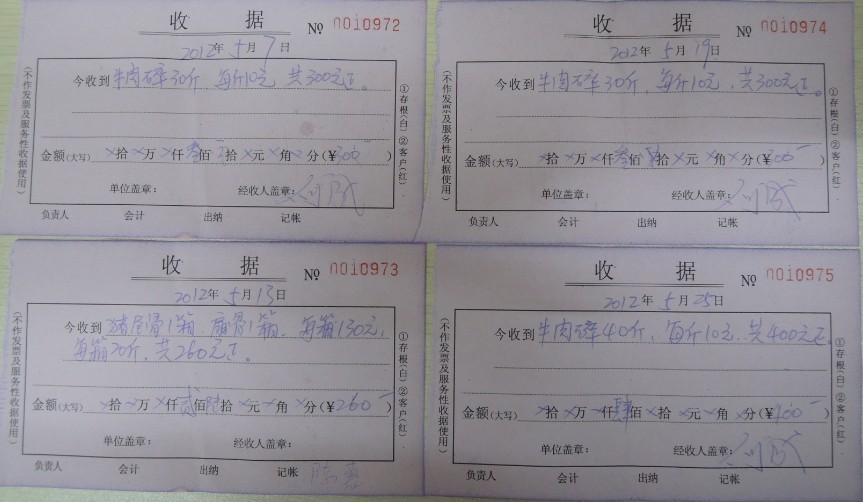 收 据
№ 0010972
2012年5月7日
今收到 牛肉碎30斤，每斤10元，共300元正。
金额(大写) ×拾×万×仟叁佰 拾×元×角×分(¥300一)
单位盖章： 经收人盖章：
负责人 会计 出纳 记帐
(不作发票及服务性收据使用)
①存根(白)②客户(红).
收 据
№ 0010974
2012年5月19日
今收到 牛肉碎30斤，每斤10元，共300元正。
金额(大写) ×拾×万×仟叁佰 拾×元×角×分(¥300一)
单位盖章： 经收人盖章：
负责人 会计 出纳 记帐
(不作发票及服务性收据使用)
①存根(白)②客户(红).
收 据
№ 0010973
2012年5月13日
今收到 猪 骨1箱，扇骨1箱，每箱130元，
每箱20斤，共260元正。
金额(大写) ×拾×万×仟贰佰陆拾×元×角×分(¥260一)
单位盖章： 经收人盖章：
负责人 会计 出纳 记帐
(不作发票及服务性收据使用)
①存根(白)②客户(红).
收 据
№ 0010975
2012年5月25日
今收到 牛肉碎40斤，每斤10元，共400元正。
金额(大写) ×拾×万×仟肆佰×拾×元×角×分(¥400一)
单位盖章： 经收人盖章：
负责人 会计 出纳 记帐
(不作发票及服务性收据使用)
①存根(白)②客户(红).